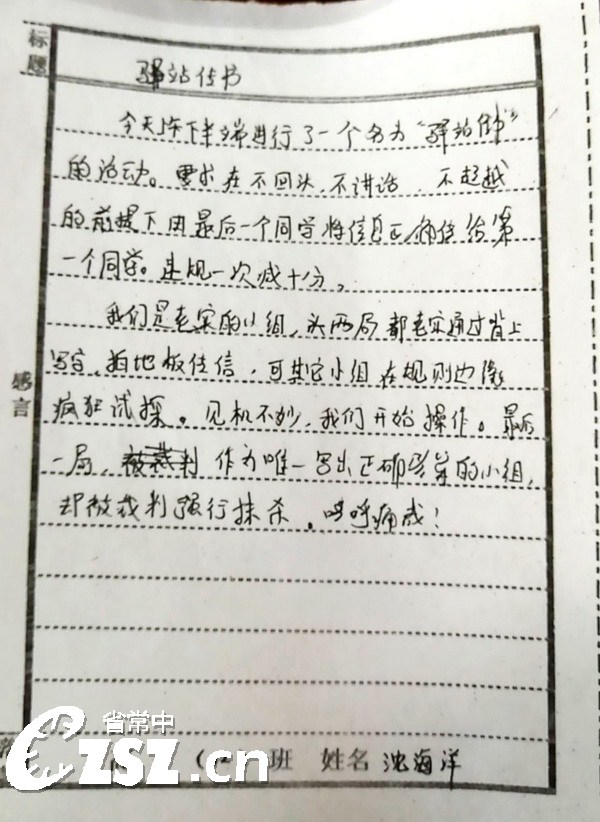 标题
驿站传书
今天上午下半端进行了一个名为“驿站传书”
的活动。要求在不回头、不讲话、不超越
的前提下由最后一个同学将信息正确传给第
一个同学。违规一次减十分。
我们是老实的小组,头两局都老实通过背上
写字、拍地板传信,可其它小组在规则边缘
疯狂试探。见机不妙,我们开始操作。最后
一局,被裁判作为唯一写出正确答案的小组,
却被裁判强行抹杀。呜呼痛哉!
感言
省常中
CZSZ.cn
班 姓名 沈海洋